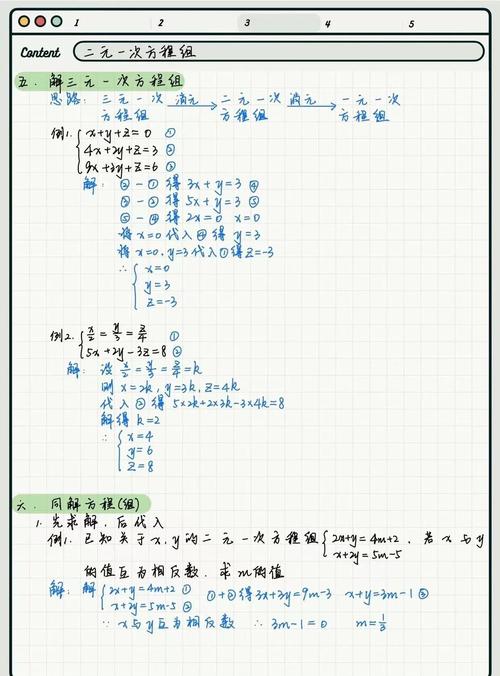 1 2 3 4 5
Content 二元一次方程组
五. 解三元一次方程组
思路: 三元一次方程组 消元→ 二元一次方程组 消元→ 一元一次方程组
例1. { x+y+z=0 ①
4x+2y+z=3 ②
9x+3y+z=6 ③
解: ②-① 得 3x+y=3 ④
③-② 得 5x+y=3 ⑤
⑤-④ 得 2x=0 x=0
将 x=0 代入④得 y=3
将 x=0, y=3代入①得 z=-3
∴ { x=0
y=3
z=-3
例2. { x/2 = y/3 = z/4 ①
5x+2y-3z=8 ②
解: 设 x/2 = y/3 = z/4 = k
则 x=2k, y=3k, z=4k
代入②得 5×2k+2×3k-3×4k=8
解得 k=2
∴ { x=4
y=6
z=8
六. 同解方程(组)
1. 先求解, 后代入
例1. 已知关于x,y的二元一次方程组 { 2x+y=4m+2 , 若x与y
x+2y=5m-5
的值互为相反数, 求m的值
解: 解 { 2x+y=4m+2 ① ①+②得3x+3y=9m-3 x+y=3m-1 ③
x+2y=5m-5 ②
∵ x与y互为相反数 ∴ 3m-1=0 m=1/3